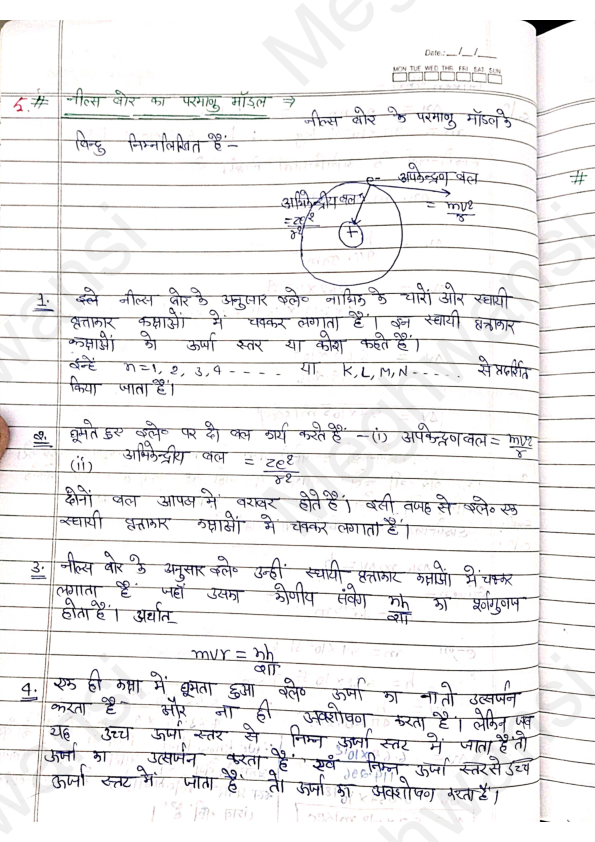 Date: _/_/_
MON TUE WED THU FRI SAT SUN
5. # नील्स बोर का परमाणु मॉडल ⇒
नील्स बोर के परमाणु मॉडल के
बिन्दु निम्नलिखित हैं-
e- अपकेन्द्रण बल
= mv²/r
अभिकेन्द्रीय बल
= ze²/r²
+
#
1. इले नील्स बोर के अनुसार इले० नाभिक के चारों ओर स्थायी
वृत्ताकार कक्षाओं में चक्कर लगाता है। इन स्थायी वृत्ताकार
कक्षाओं को ऊर्जा स्तर या कोश कहते हैं।
इन्हें n=1, 2, 3, 4 - - - - - या K, L, M, N - - - - - से प्रदर्शित
किया जाता है।
2. घूमते हुए इले० पर दो बल कार्य करते हैं - (i) अपकेन्द्रण बल = mv²/r
(ii) अभिकेन्द्रीय बल = ze²/r²
दोनों बल आपस में बराबर होते हैं। इसी वजह से इले० एक
स्थायी वृत्ताकार कक्षाओं में चक्कर लगाता है।
3. नील्स बोर के अनुसार इले० उन्हीं स्थायी वृत्ताकार कक्षाओं में चक्कर
लगाता है जहाँ उसका कोणीय संवेग nh/2π का पूर्णगुणज
होता है। अर्थात
mvr = nh/2π
4. एक ही कक्षा में घूमता हुआ इले० ऊर्जा का ना तो उत्सर्जन
करता है और ना ही अवशोषण करता है। लेकिन जब
यह उच्च ऊर्जा स्तर से निम्न ऊर्जा स्तर में जाता है तो
ऊर्जा का उत्सर्जन करता है एवं निम्न ऊर्जा स्तर से उच्च
ऊर्जा स्तर में जाता है तो ऊर्जा का अवशोषण करता है।
Meghwansi